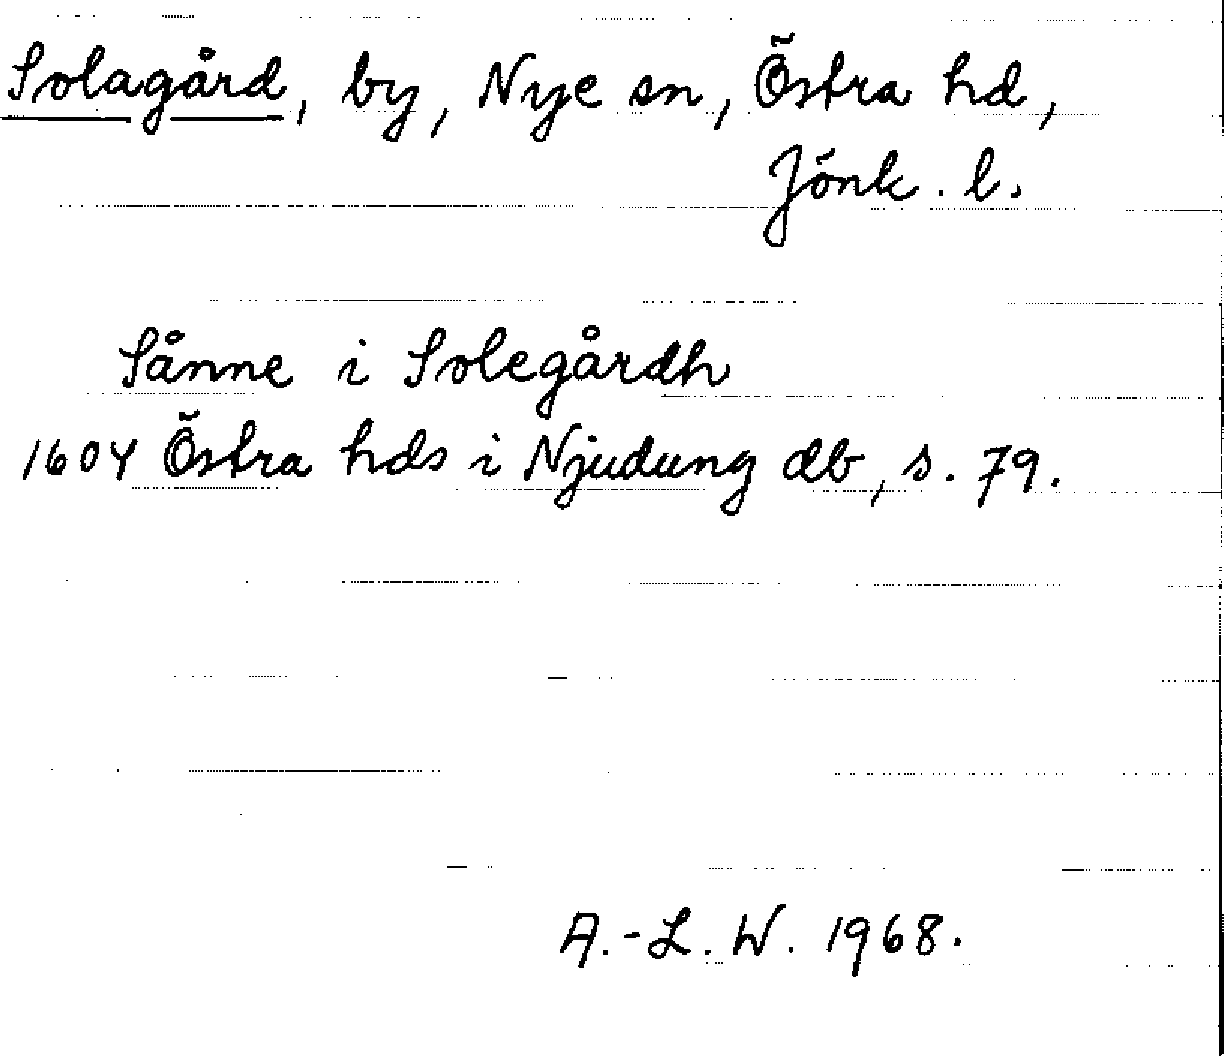 Solagård, by, Nye sn, Östra hd,
Jönk. l.
Sånne i Solegårdh
1604 Östra hds i Njudung db, s. 79.
A.-L. W. 1968.